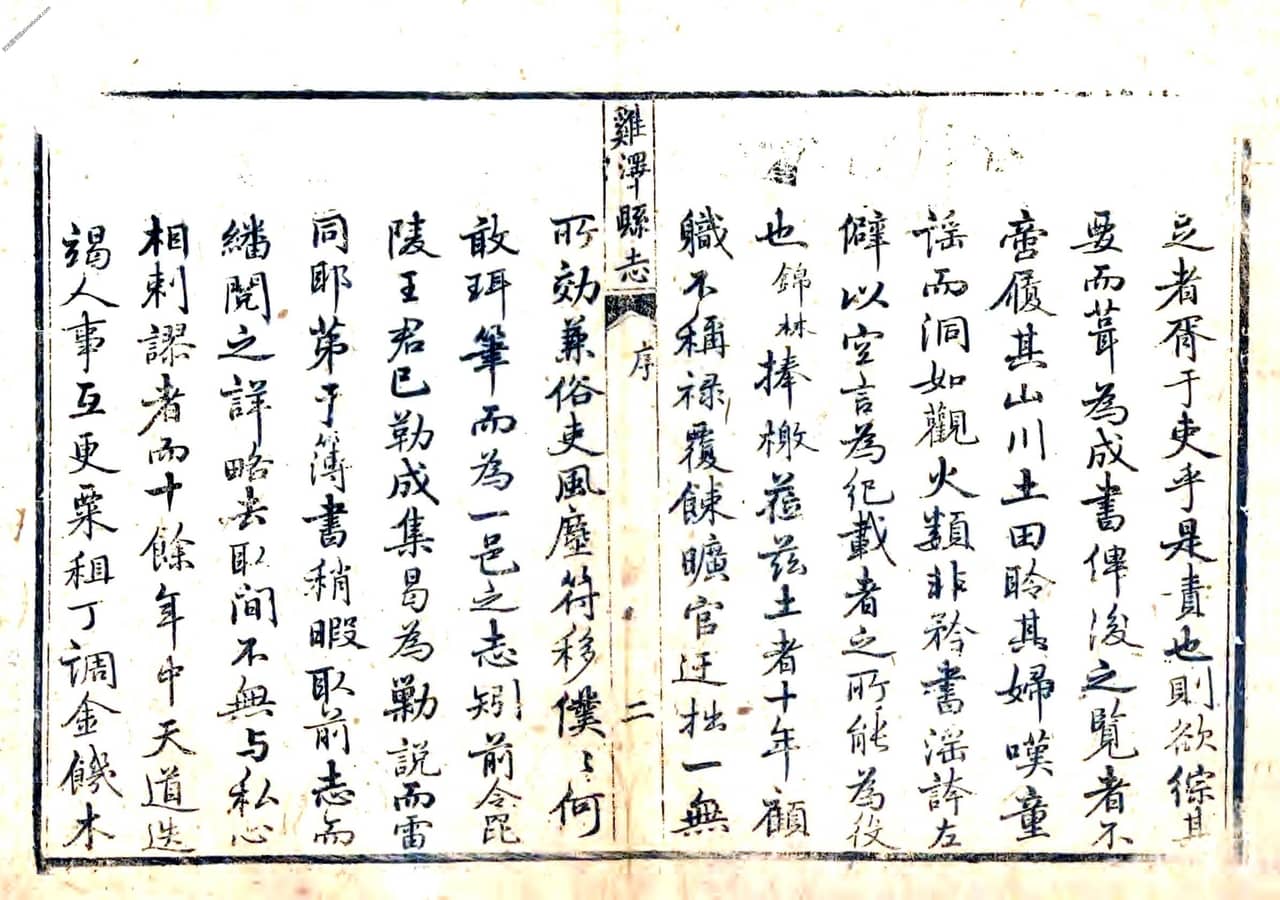 足者胥于吏乎是責也則欲綜其
要而葺為成書俾後之覽者不
啻履其山川土田聆其婦嘆童
謡而洞如觀火類非矜書滛誇左
僻以空言為紀載者之所能為役
也錦林捧檄蒞兹土者十年顧
職不稱禄覆餗曠官迂拙一無
雞澤縣志 序 二
所効蒹俗吏風塵符移僕〻何
敢珥筆而為一邑之志矧前令毘
陵王君已勒成集曷為勦説而雷
同耶苐于簿書稍暇取前志而
繙閲之詳略去取間不無与私心
相剌謬者而十餘年中天道迭
竭人事互更粟租丁調金饑木